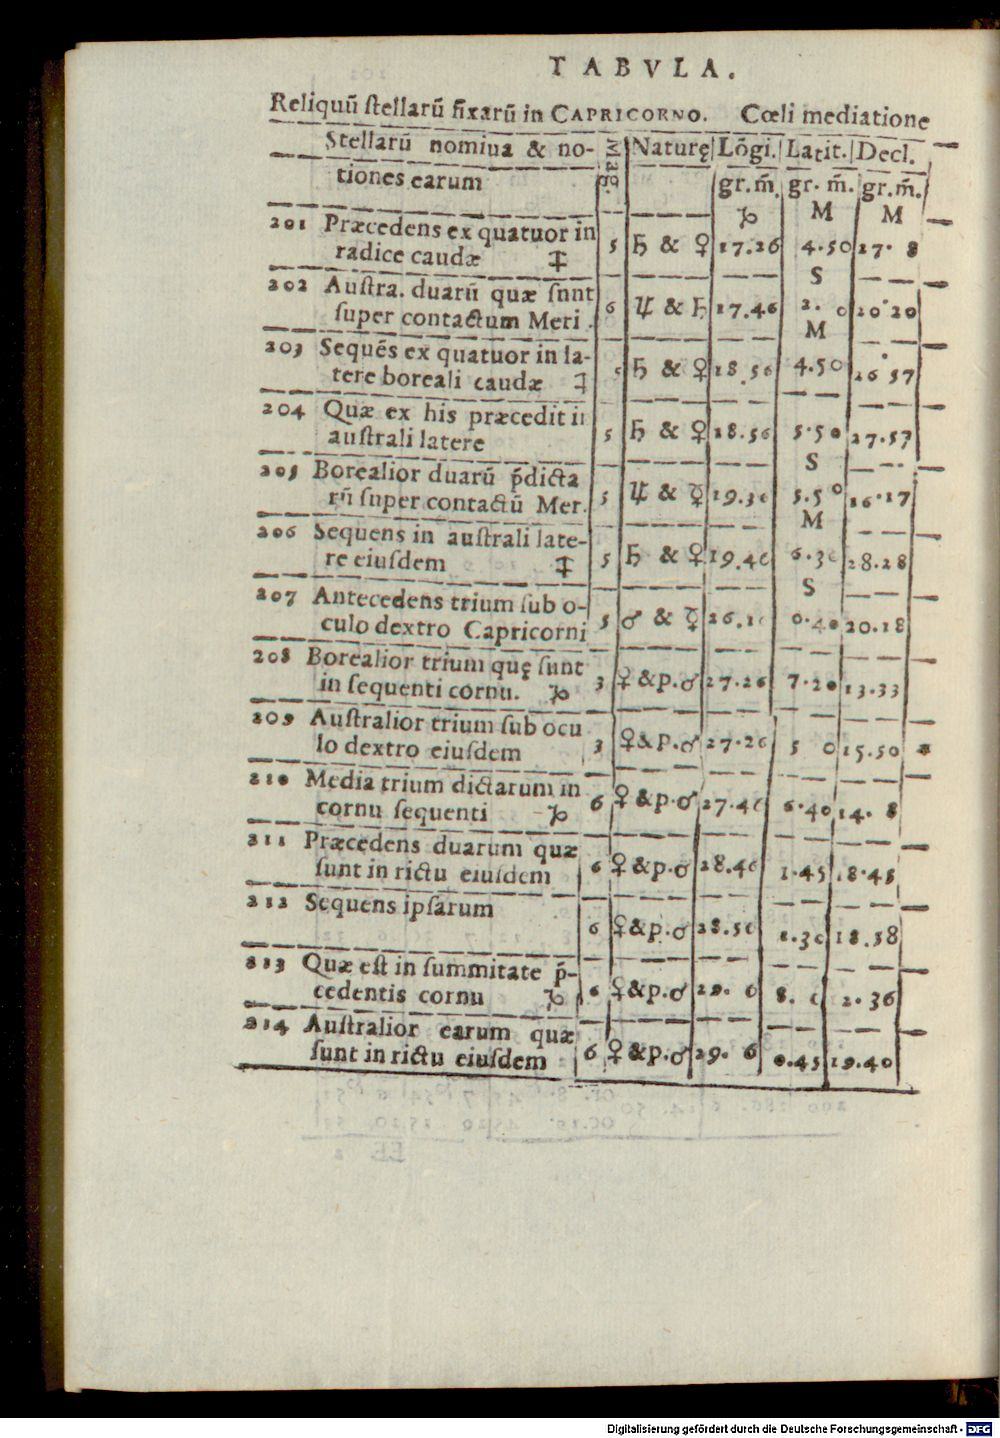 TABVLA.
Reliquũ stellarũ fixarũ in CAPRICORNO. Cœli mediatione
Stellarũ nomiua & no- Mag. Naturę Lõgi. Latit. Decl.
tiones earum gr.m̃. gr. m̃. gr.m̃.
♑ M M
201 Præcedens ex quatuor in 5 ♄ & ♀ 17.26 4.50 27. 8
radice caudæ ♐
S
202 Austra. duarũ quæ sunt 6 ♃ & ♄ 17.46 2. 0 20 20
super contactum Meri.
M
203 Sequẽs ex quatuor in la- 5 ♄ & ♀ 18.56 4.50 26 57
tere boreali caudæ ♐
204 Quæ ex his præcedit in 5 ♄ & ♀ 18.56 5.50 27.57
australi latere
S
205 Borealior duarũ p̃dicta 5 ♃ & ☿ 19.36 5.50 16.17
rũ super contactũ Mer.
M
206 Sequens in australi late- 5 ♄ & ♀ 19.46 6.30 28.28
re eiusdem ♐
S
207 Antecedens trium sub o- 5 ♂ & ☿ 26.16 0.40 20.18
culo dextro Capricorni
208 Borealior trium quę sunt 3 ♀ & p. ♂ 27.26 7.20 13.33
in sequenti cornu. ♑
209 Australior trium sub ocu 3 ♀ & p. ♂ 27.26 5 0 15.50 *
lo dextro eiusdem
210 Media trium dictarum in 6 ♀ & p. ♂ 27.46 6.40 14. 8
cornu sequenti ♑
211 Præcedens duarum quæ 6 ♀ & p. ♂ 28.46 1.45 18.45
sunt in rictu eiusdem
212 Sequens ipsarum 6 ♀ & p. ♂ 28.56 1.30 18.58
213 Quæ est in summitate p̃- 6 ♀ & p. ♂ 29. 6 8. 2. 36
cedentis cornu ♑
214 Australior earum quæ 6 ♀ & p. ♂ 29. 6 0.45 19.40
sunt in rictu eiusdem
Digitalisierung gefördert durch die Deutsche Forschungsgemeinschaft - DFG